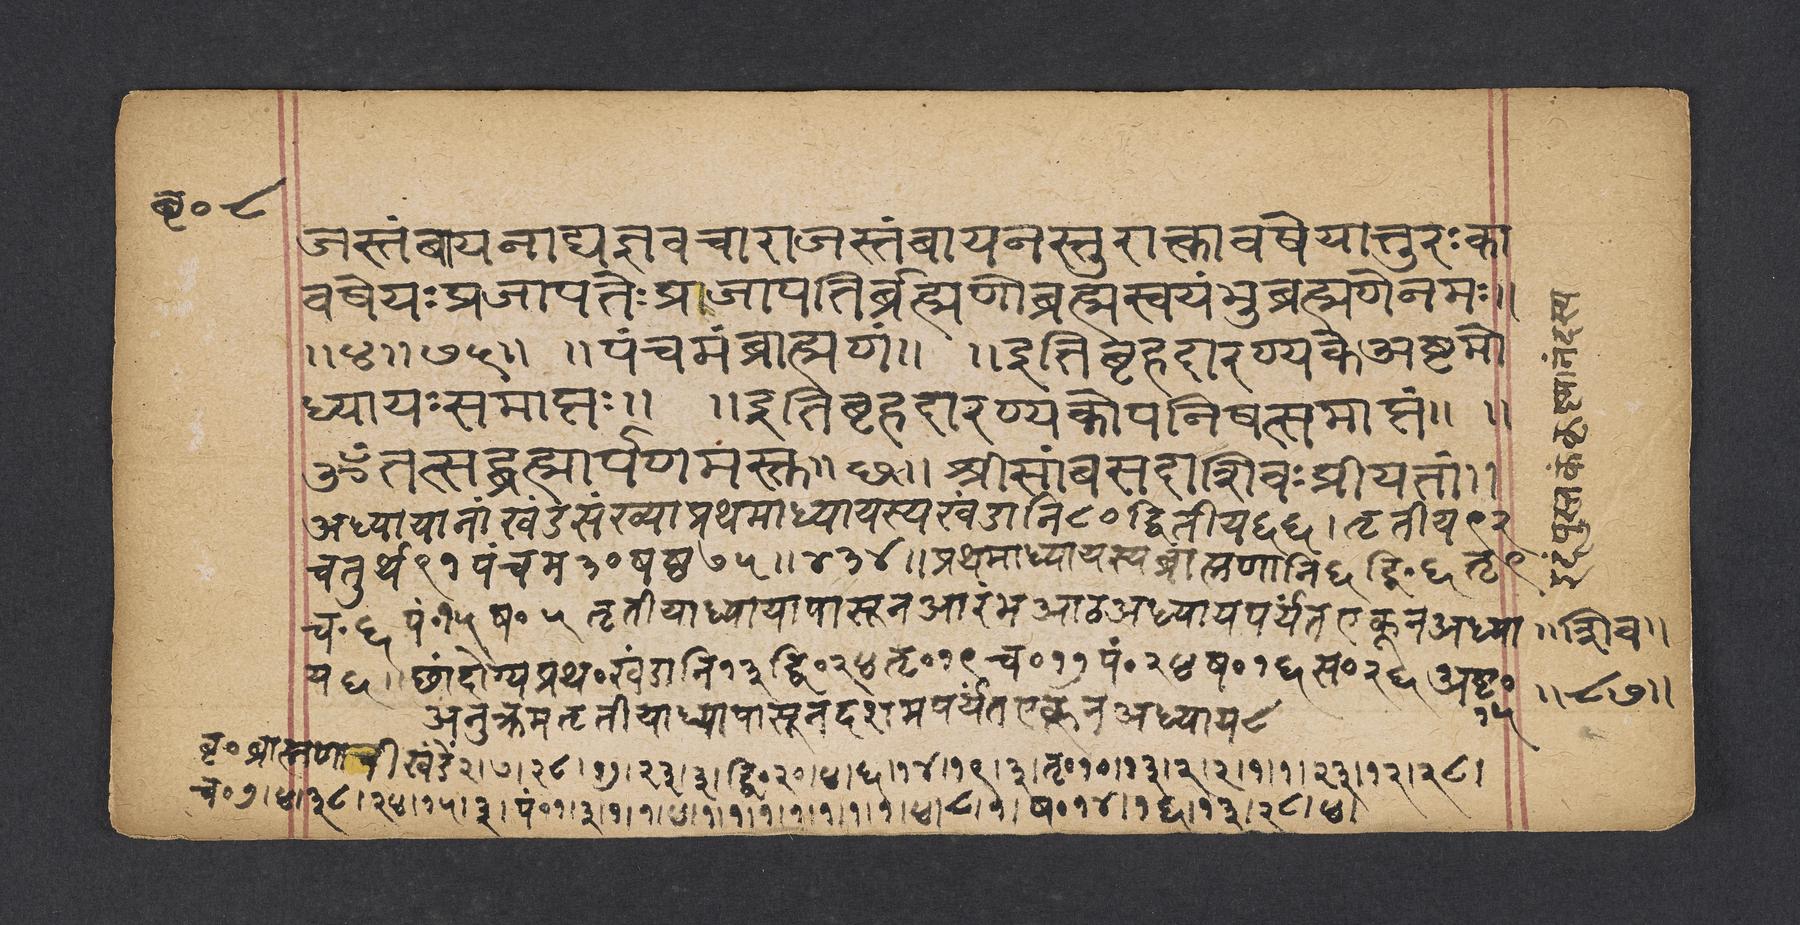 बृ० ८
जस्तंबायनाद्यज्ञवचाराजस्तंबायनस्तुरात्कावषेयात्तुरःका
वषेयःप्रजापतेःप्राजापतिर्ब्रह्मणोब्रह्मस्वयंभुब्रह्मणेनमः॥
॥४॥७५॥ ॥पंचमंब्राह्मणं॥ ॥इतिबृहदारण्यकेअष्टमो
ध्यायःसमाप्तः॥ ॥इतिबृहदारण्यकोपनिषत्समाप्तं॥ ॥
ॐतत्सद्ब्रह्मार्पणमस्तु॥छ॥ श्रीसांबसदाशिवःप्रीयतां॥
अध्यायानांखंडसंख्याप्रथमाध्यायस्यखंडानि८०द्वितीय६६।तृतीय९२
चतुर्थ९१पंचम३०षष्ठ७५॥४३४॥प्रथमाध्यायस्यब्राह्मणानि६द्वि०६तृ९
च०६पं०१५ष०५तृतीयाध्यायापासूनआरंभआठअध्यायपर्यंतएकूनअध्या
य६॥छांदोग्यप्रथ०खंडानि१३द्वि०२४तृ०१९च०१७पं०२४ष०१६स०२६अष्ट०
१५
अनुक्रमतृतीयाध्यापासूनदशमपर्यंतएकूनअध्याय८
बृ०ब्राह्मणाचीखंडें२।७।२८।१७।२३।३।द्वि०२०।४।६।१४।१९।३।तृ०१०।१३।२।२।१।१।२३।१२।२८।
च०७।४।३८।२४।१५।३।पं०१।३।१।१।४।१।१।१।१।१।१।१।४।८।१।ष०१४।१६।१३।२८।४।
॥शिव॥
॥८७॥
इदंपुस्तकं